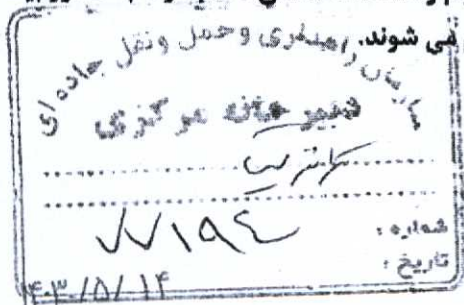 می شوند.
سازمان راهداری و حمل و نقل جاده ای
دبیرخانه مرکزی
شماره : ۷۷۱۹۴
تاریخ : ۱۴۰۳/۵/۱۴